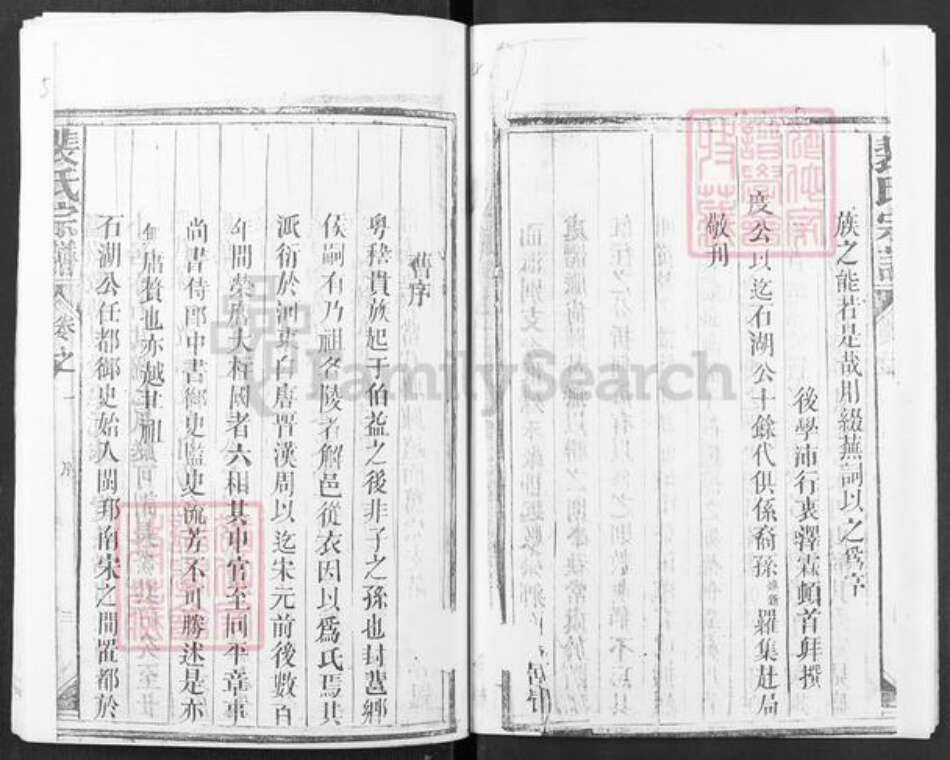 族之能若是哉用綴蕪詞以之爲序
後學沛行衷澤霖頓首拜撰
度公以迄石湖公十餘代俱係裔孫 羅集赴局
敬刊
裴氏宗譜
舊序
粤稽貴族起于伯益之後非子之孫也封𨛬鄉
侯嗣有乃祖名陵者解邑從衣因以爲氏焉其
派衍於河東自唐晋漢周以迄宋元前後數百
年間榮膺大柱國者六相其中官至同平章事
尚書侍郎中書御史監史流芳不可勝述是亦
無庸贅也亦越世祖
石湖公任都御史始入閩邦南宋之間置都於
裴氏宗譜 卷之一
FamilySearch